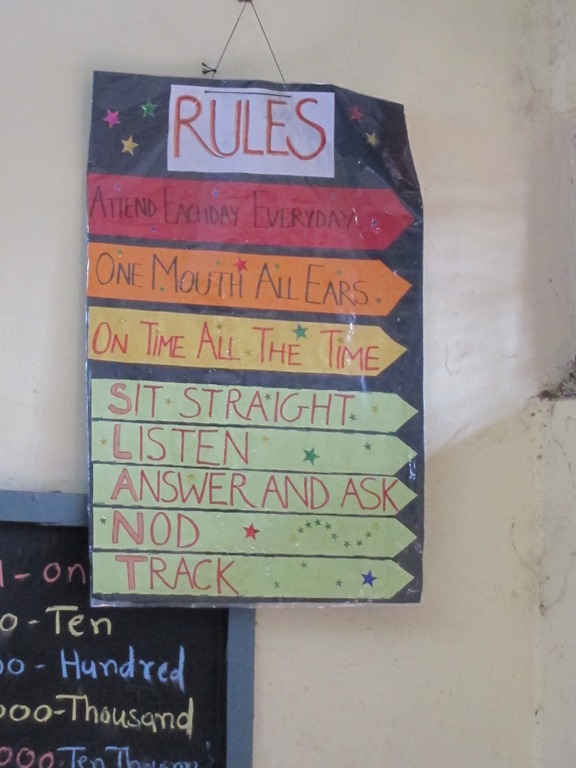 RULES
ATTEND EACHDAY EVERYDAY
ONE MOUTH ALL EARS
ON TIME ALL THE TIME
SIT STRAIGHT
LISTEN
ANSWER AND ASK
NOD
TRACK
- On
0 - Ten
00 - Hundred
000-Thousand
000-Ten Thousand